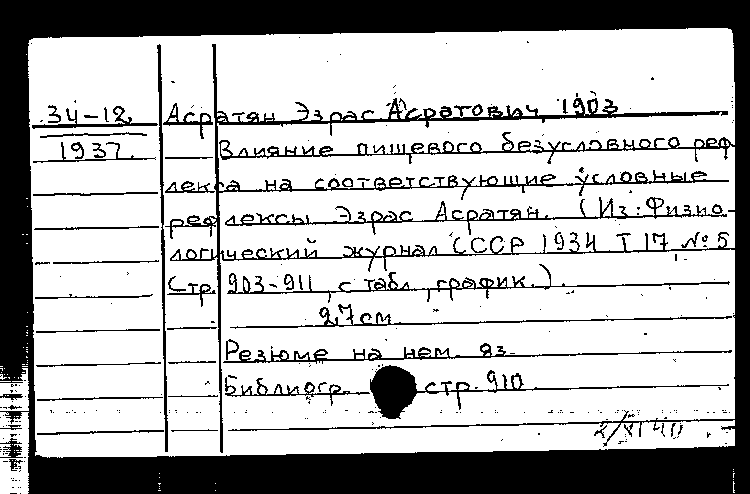 34-12 Асратян, Эзрас Асратович, 1903
1937. Влияние пищевого безусловного реф
лекса на соответствующие условные
рефлексы Эзрас Асратян. (Из: Физио-
логический журнал СССР 1934 Т 17, № 5
Стр. 903-911, с табл., график.).
27 см
Резюме на нем. яз.
Библиогр. стр. 910.
2/XI 40